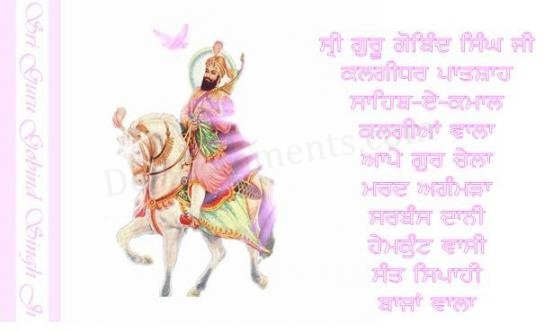 Sri Guru Gobind Singh Ji
ਸ੍ਰੀ ਗੁਰੂ ਗੋਬਿੰਦ ਸਿੰਘ ਜੀ
ਕਲਗੀਧਰ ਪਾਤਸ਼ਾਹ
ਸਾਹਿਬ-ਏ-ਕਮਾਲ
ਕਲਗੀਆਂ ਵਾਲਾ
ਆਪੇ ਗੁਰ ਚੇਲਾ
ਮਰਦ ਅਗੰਮੜਾ
ਸਰਬੰਸ ਦਾਨੀ
ਹੇਮਕੁੰਟ ਵਾਸੀ
ਸੰਤ ਸਿਪਾਹੀ
ਬਾਜਾਂ ਵਾਲਾ